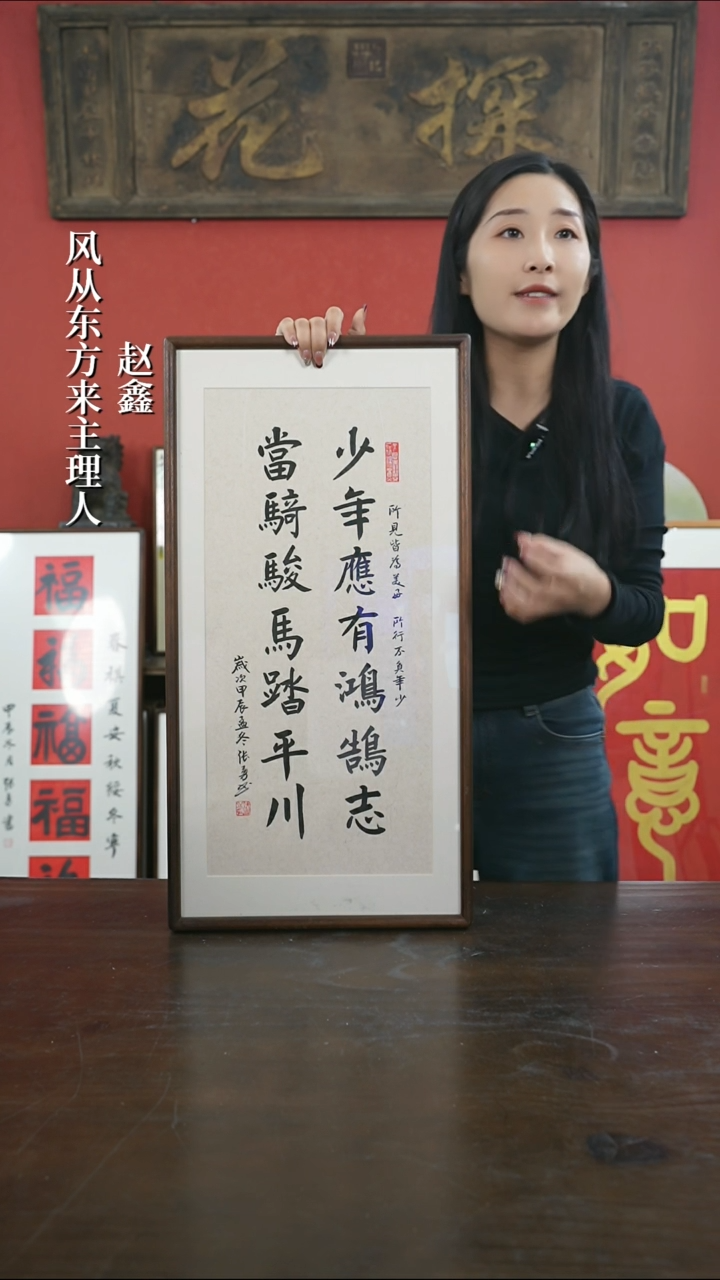 探花
风从东方来主理人
赵鑫
少年應有鴻鵠志
當騎駿馬踏平川
所見皆為美好 所行不負年少
歲次甲辰孟冬張勇書
福
福
福
福
春祺夏安秋绥冬寧
如意